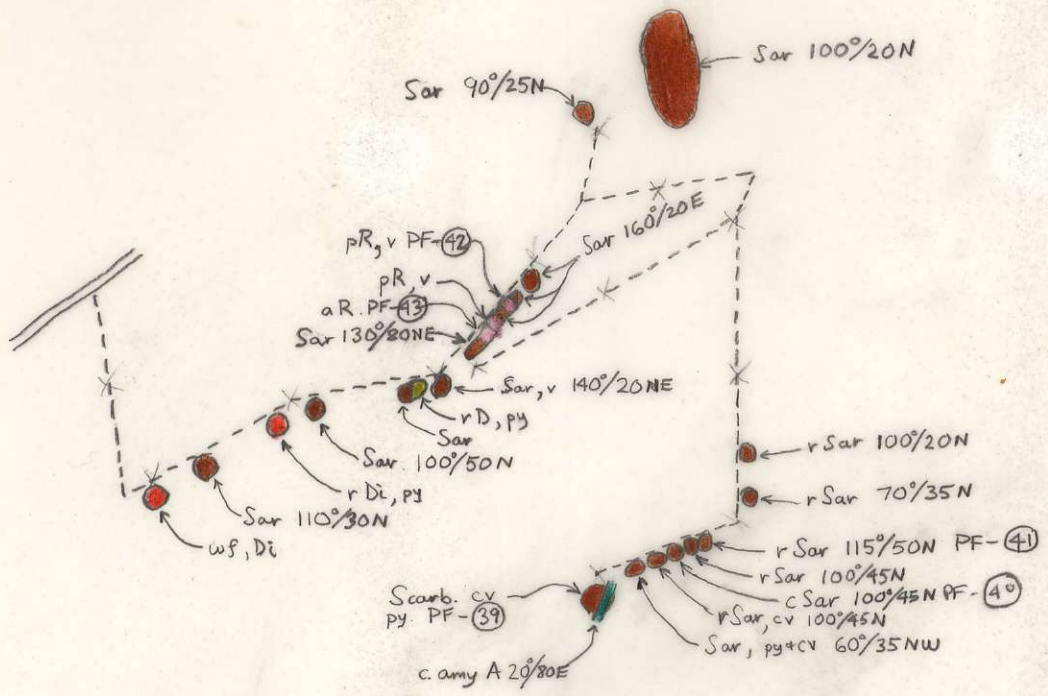 Sar 100°/20N
Sar 90°/25N
Sar 160°/20E
pR, v PF-42
pR, v
aR. PF-43
Sar 130°/80NE
Sar, v 140°/20NE
rD, py
Sar
Sar. 100°/50N
r Di, py
Sar 110°/30N
wf, Di
r Sar 100°/20N
r Sar 70°/35N
r Sar 115°/50N PF-41
r Sar 100°/45N
c Sar 100°/45N PF-40
r Sar, cv 100°/45N
Sar, py+cv 60°/35NW
Scarb. cv
py. PF-39
c. amy A 20°/80E